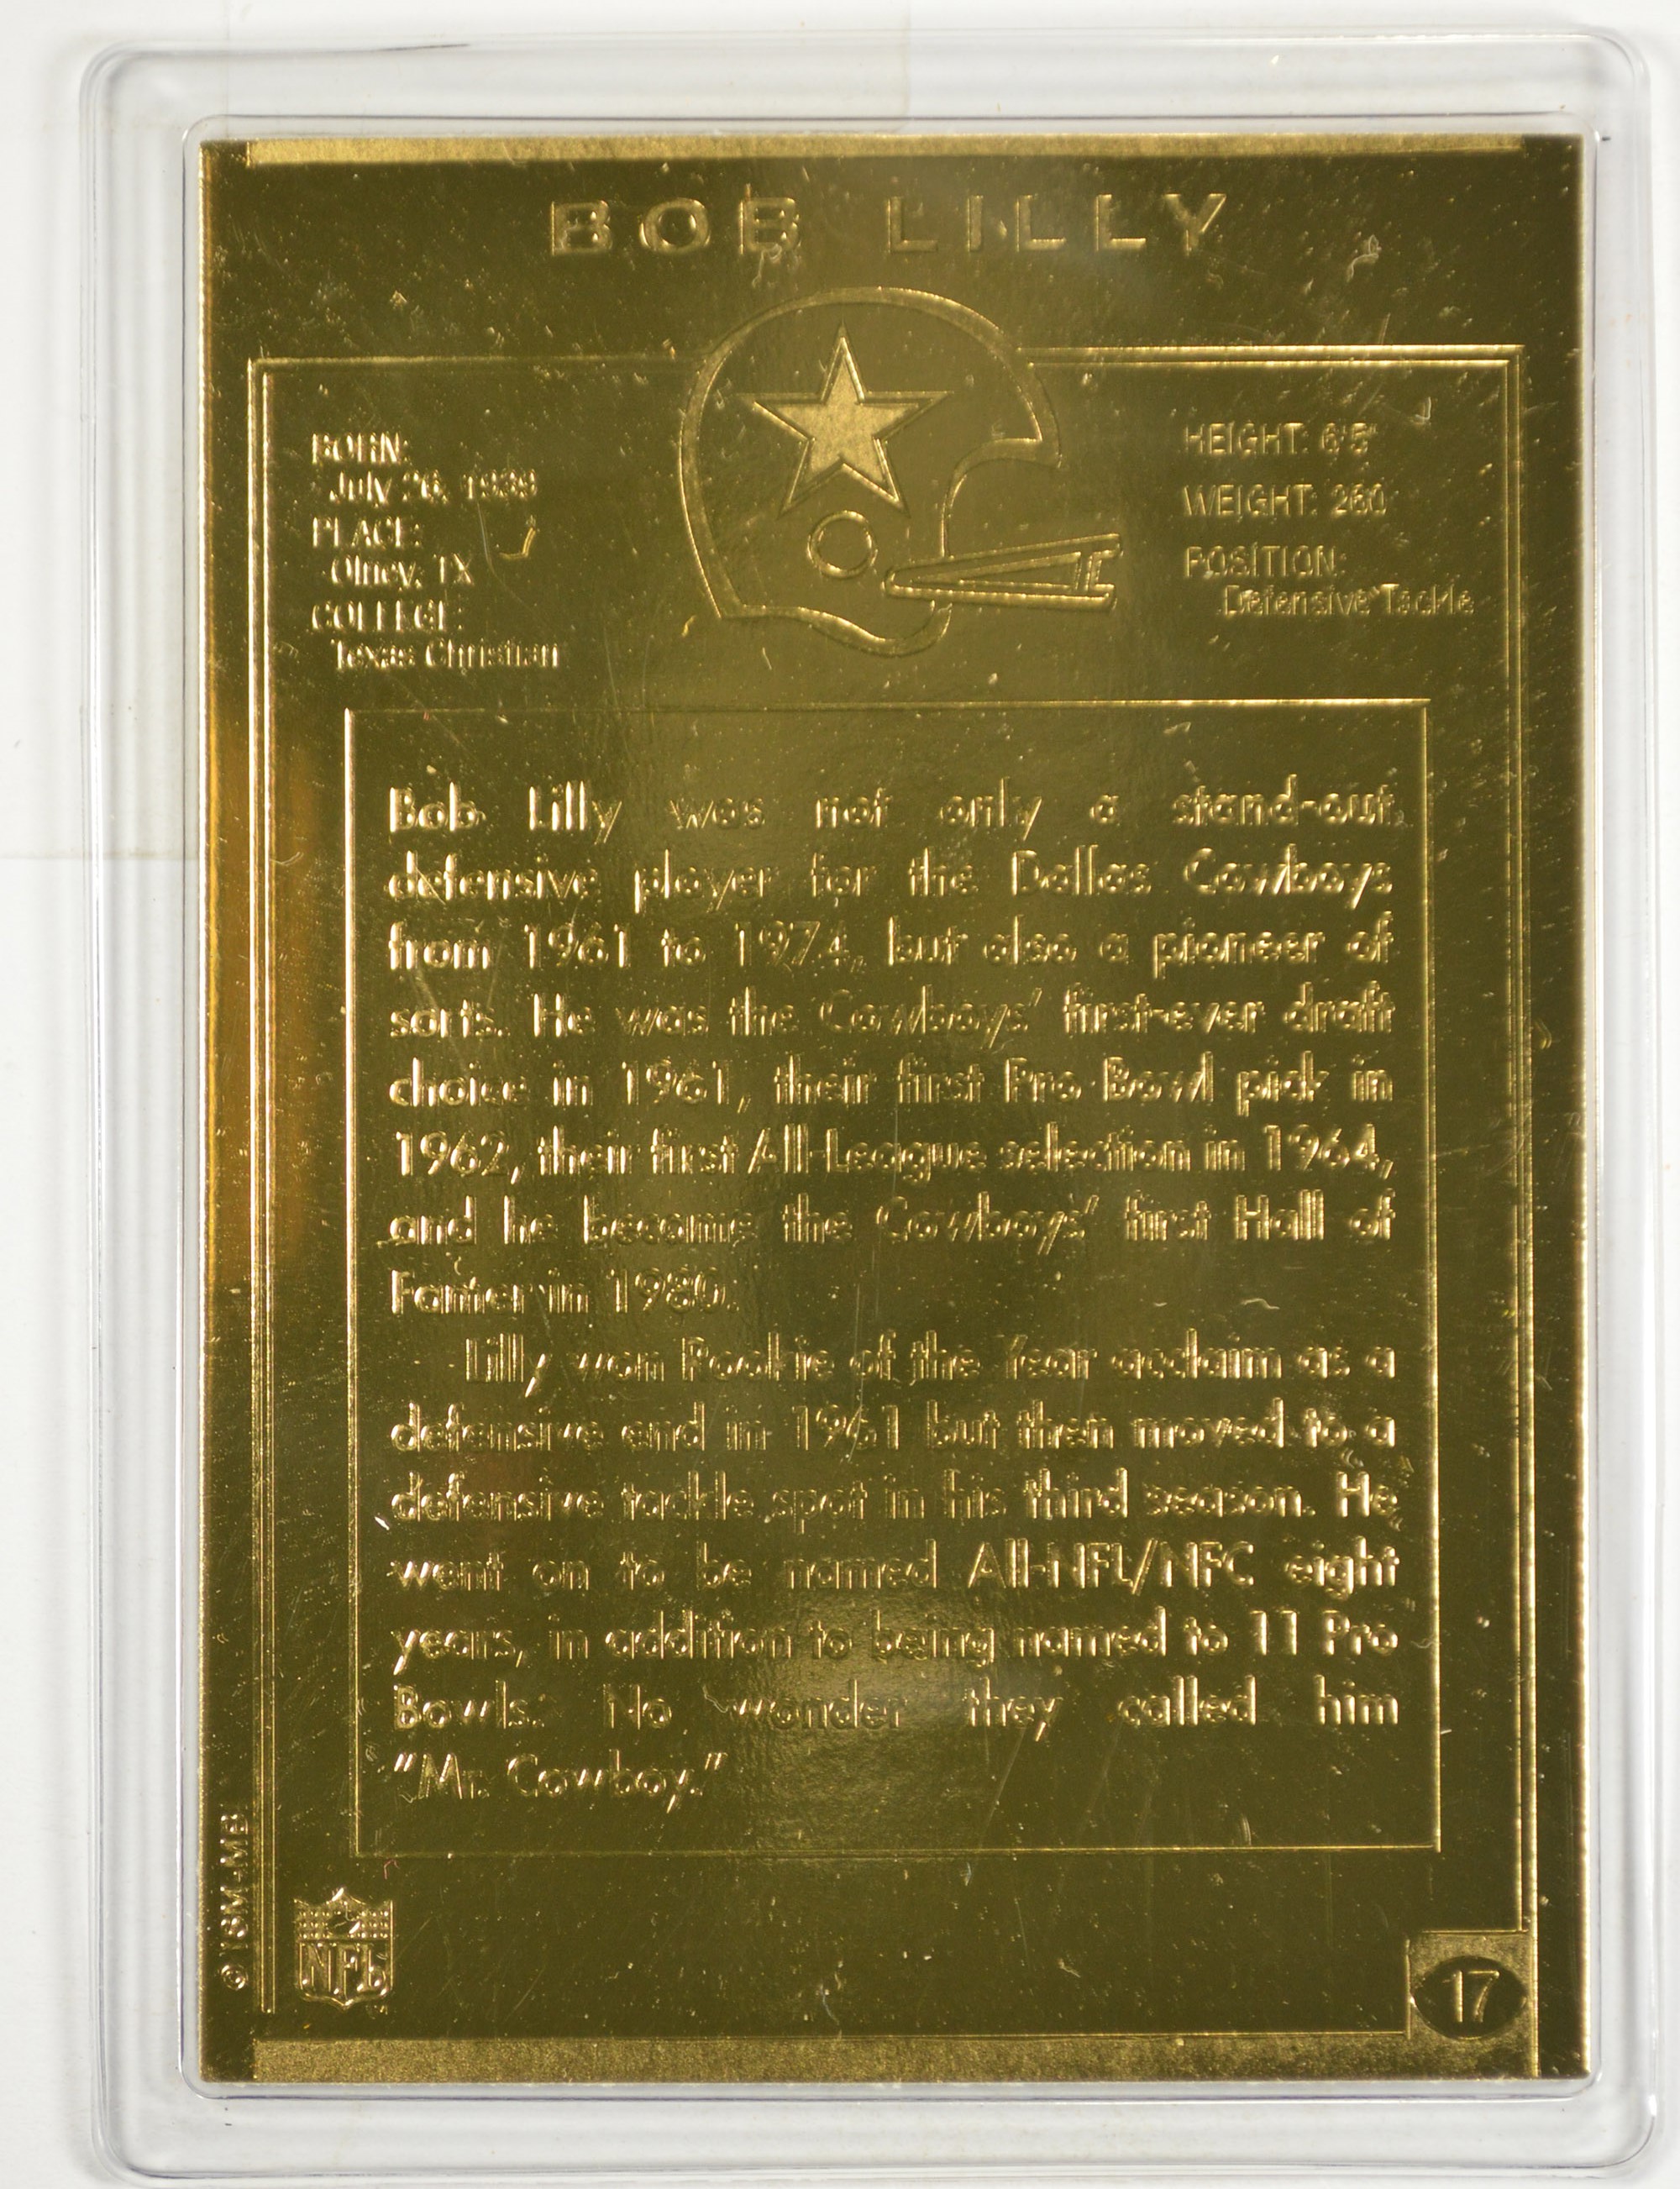 BOB LILLY
BORN:
July 26, 1939
PLACE:
Olney, TX
COLLEGE:
Texas Christian
HEIGHT: 6'5"
WEIGHT: 260
POSITION:
Defensive Tackle
Bob Lilly was not only a stand-out
defensive player for the Dallas Cowboys
from 1961 to 1974, but also a pioneer of
sorts. He was the Cowboys' first-ever draft
choice in 1961, their first Pro Bowl pick in
1962, their first All-League selection in 1964,
and he became the Cowboys' first Hall of
Famer in 1980.
Lilly won Rookie of the Year acclaim as a
defensive end in 1961 but then moved to a
defensive tackle spot in his third season. He
went on to be named All-NFL/NFC eight
years, in addition to being named to 11 Pro
Bowls. No wonder they called him
"Mr. Cowboy."
© ISM-MBI
NFL
17